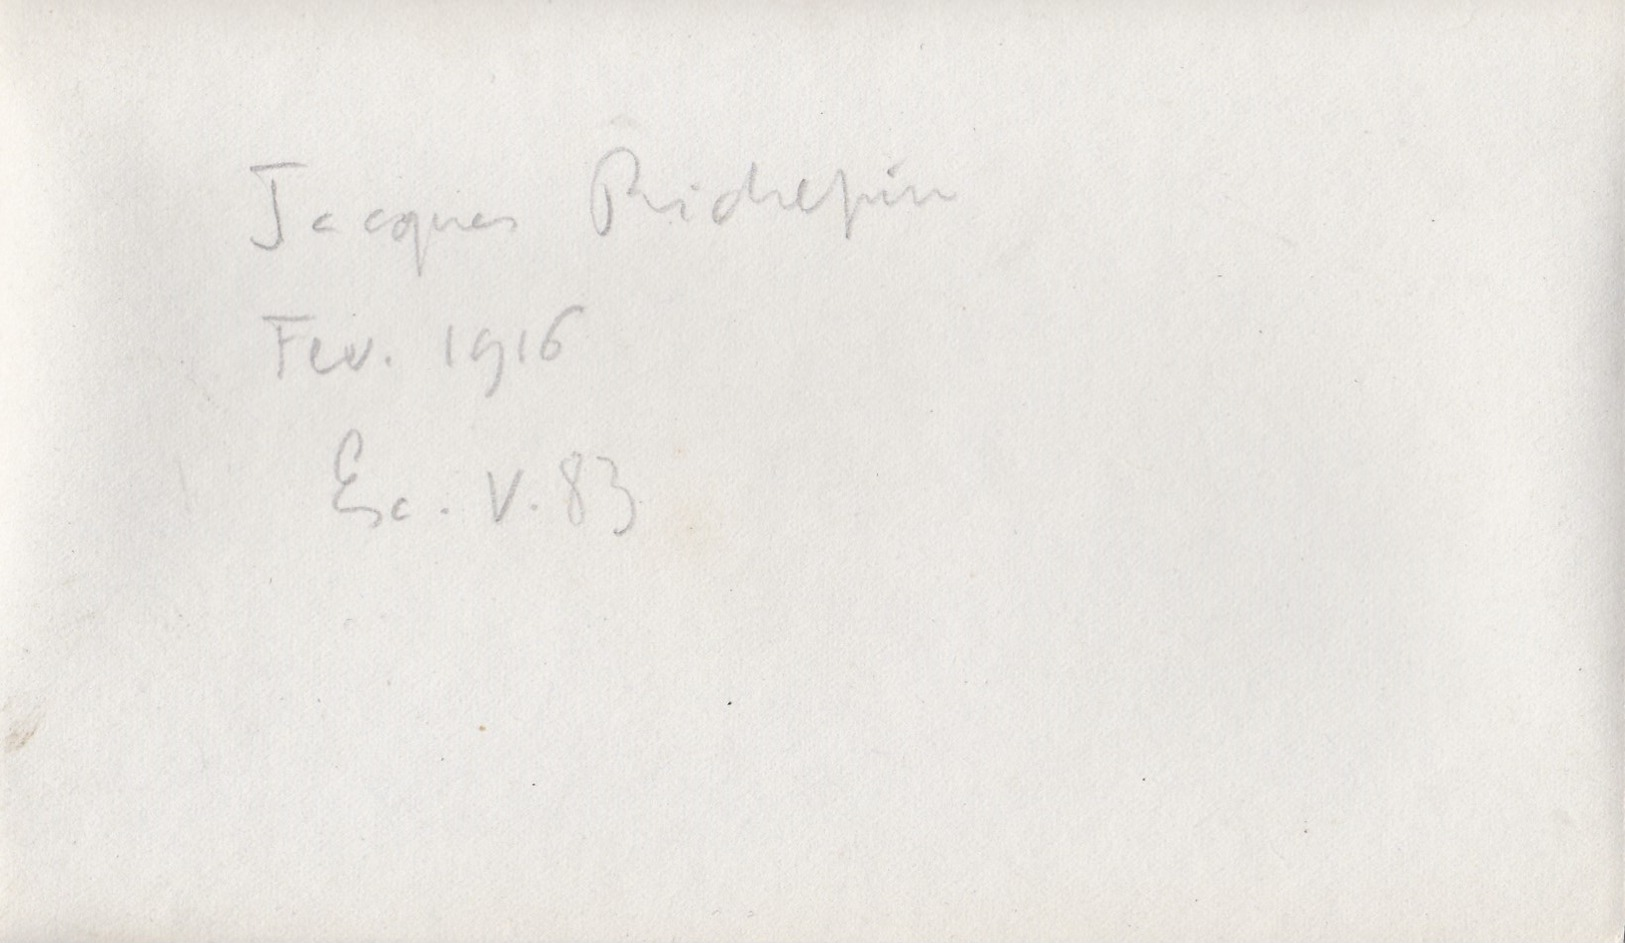 Jacques Richepin
Fev. 1916
Esc. V. 83